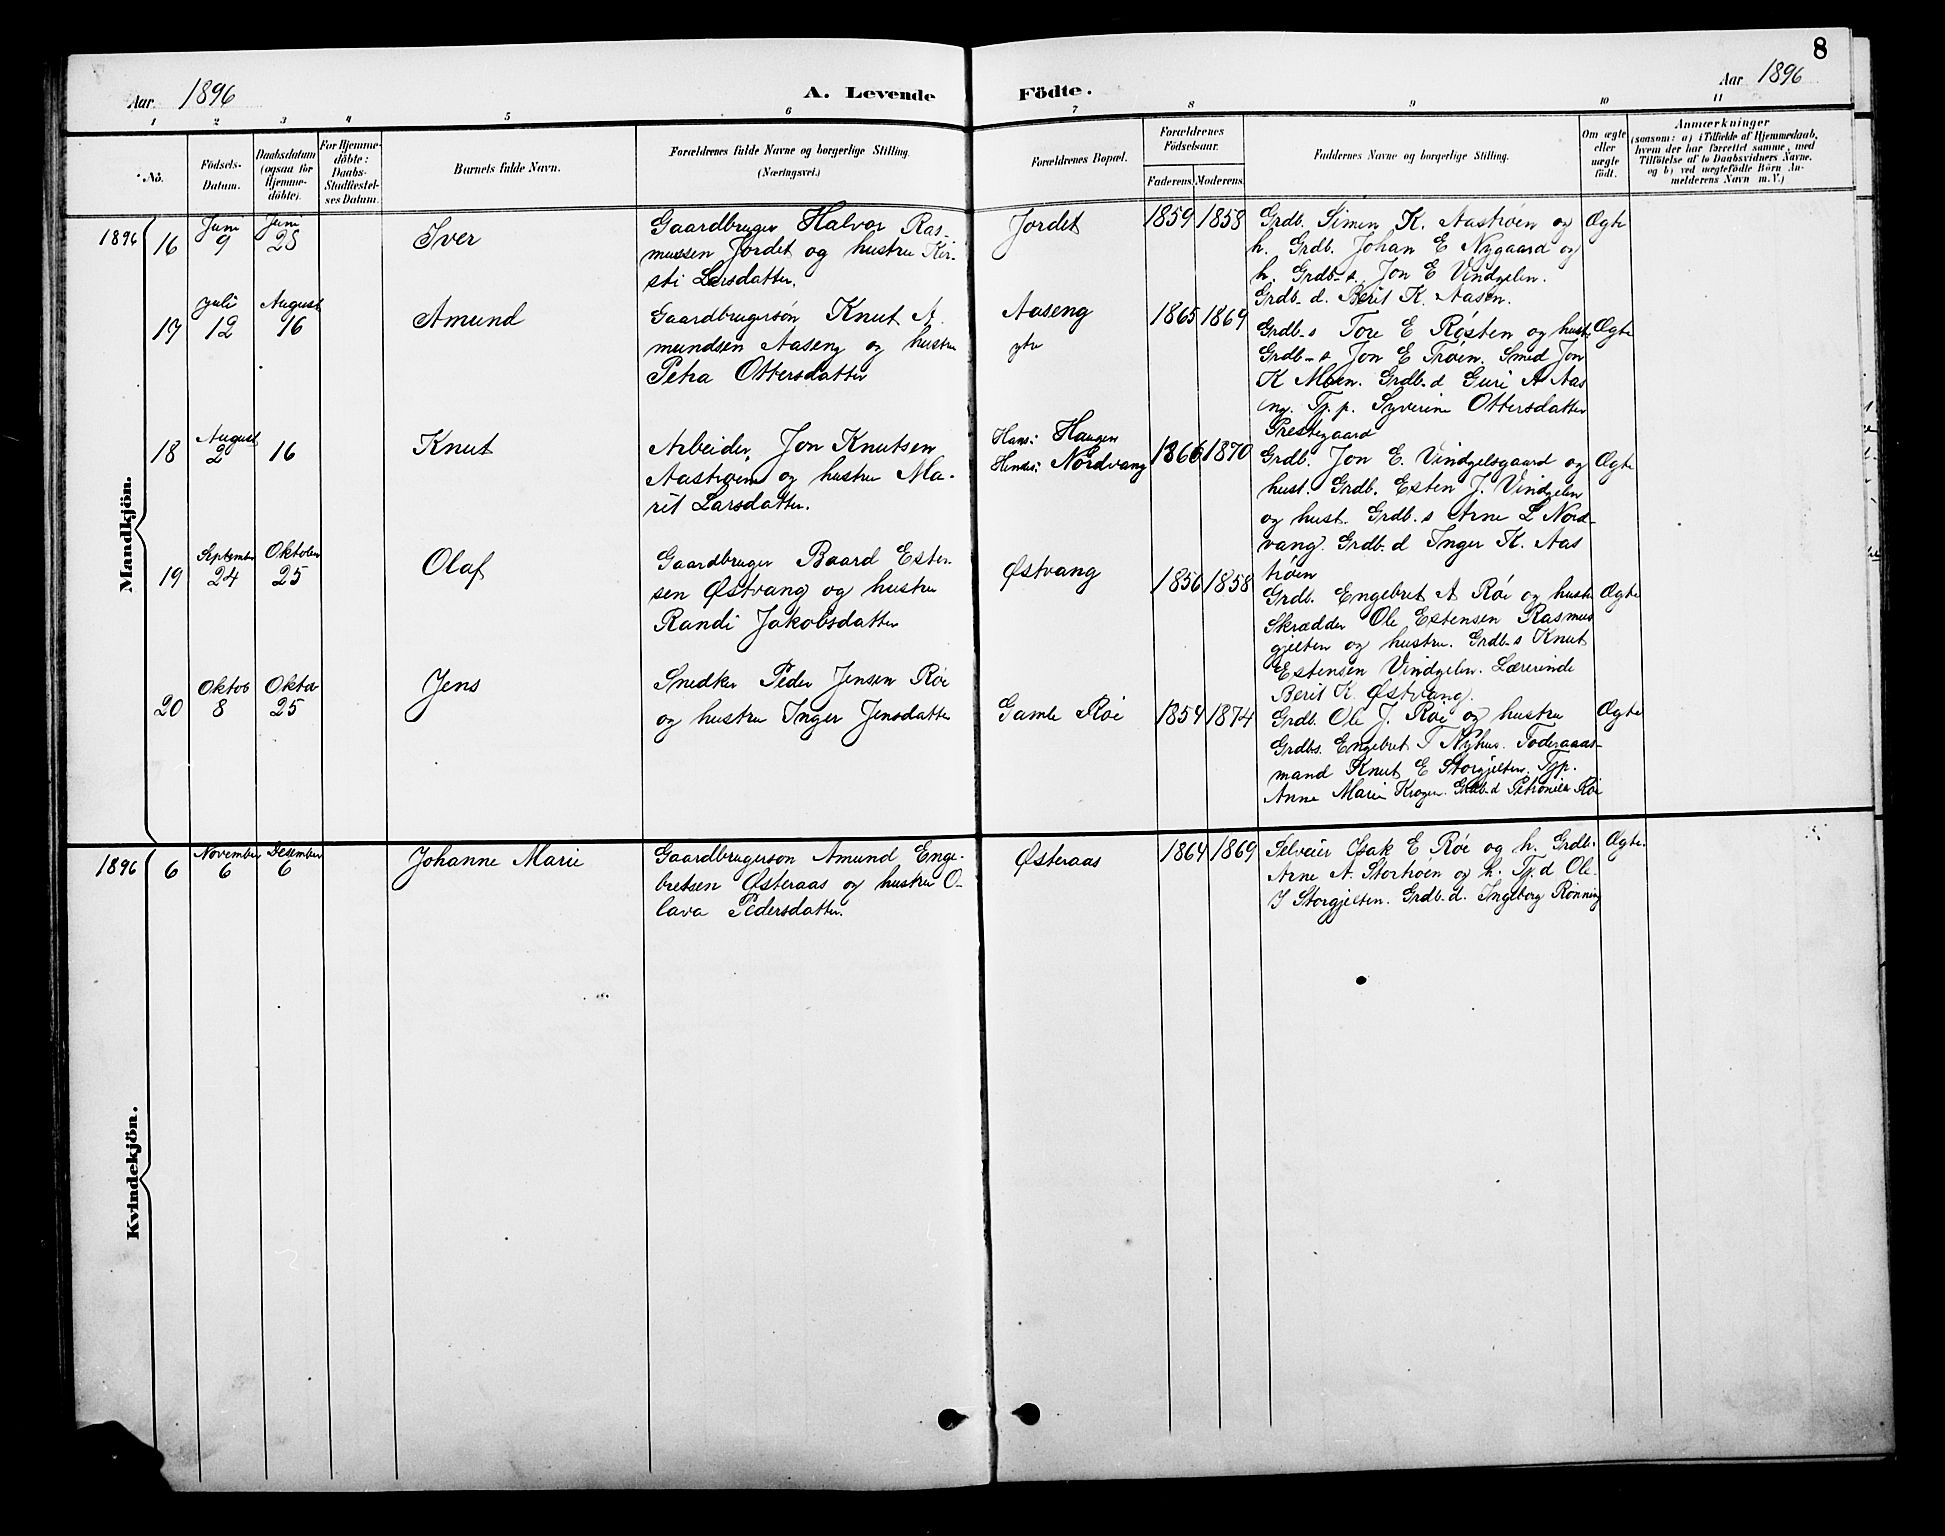 8
Aar. 1896
A. Levende Födte.
Aar 1896
1 2 3 4 5 6 7 8 9 10 11
No.
Födsels-
Datum.
Daabsdatum
(ogsaa for
Hjemme-
döbte).
For Hjemme-
döbte:
Daabs-
Stadfæstel-
ses Datum.
Barnets fulde Navn.
Forældrenes fulde Navne og borgerlige Stilling.
(Næringsvei.)
Forældrenes Bopæl.
Forældrenes
Födselsaar.
Faderens. Moderens.
Faddernes Navne og borgerlige Stilling.
Om ægte
eller
uægte
födt.
Anmærkninger
(saasom: a) i Tilfælde af Hjemmedaab,
hvem der har forrettet samme, med
Tilföielse af to Daabsvidners Navne.
og b) ved uægtefödte Börn An-
melderens Navn m. V.)
Mandkjön.
1896
16
Juni
9
Juni
28
Iver
Gaardbruger Halvor Ras-
mussen Jordet og hustru Kir-
sti Larsdatter.
Jordet
1859 1858
Grdb. Simen K. Aastrøen og
h. Grdb. Johan E Nygaard og
h. Grdb-s. Jon E Vindgelen.
Grdb-d. Berit K. Aasen.
Ægte
17
Juli
12
August
16
Amund
Gaardbrugersøn Knut A.
mundsen Aaseng og hustru
Petra Ottersdatter
Aaseng
ytre
1865 1869
Grdb-s Tore E Røsten og hust.
Grdb-s Jon E Trøen. Smed Jon
K Moen. Grdb.d Guri A Aas
eng. Tj. p. Syverine Ottersdatter
Prestegaard
Ægte
18
August
2
16
Knut
Arbeider, Jon Knutsen
Aastrøen og hustru Ma-
rit Larsdatter.
Hans: Haugen
Hendes: Nordvang
1866 1870
Grdb. Jon E. Vindgelsgaard og
hust. Grdb. Esten J. Vindgelen
og hust. Grdb.s Arne L Nord-
vang. Grdb.d Inger K. Aas
trøen
Ægte
19
September
24
Oktober
25
Olaf
Gaardbruger Baard Esten-
sen Østvang og hustru
Randi Jakobsdatter
Østvang
1856 1858
Grdb. Engebret A Røe og hustru
Skrædder Ole Estensen Rasmus
gjelten og hustru. Grdb-s Knut
Estensen Vindgelen. Lærerinde
Berit K. Østvang.
Ægte
20
Oktob
8
Oktob
25
Jens
Snedker Peder Jensen Røe
og hustru Inger Jensdatter
Gamle Røe
1854 1874
Grdb. Ole J. Røe og hustru
Grdbs. Engebret T Nyhus. Foderaads-
mand Knut E Storgjelten. Tjp.
Anne Marie Krogen. Grdb.d Petronille Røe
Ægte
Kvindekjön.
1896
6
November
6
Desember
6
Johanne Marie
Gaardbrugersøn Amund Enge-
bretsen Østeraas og hustru O-
lava Pedersdatter.
Østeraas
1864 1869
Selveier Isak E Røe og h. Grdb.
Arne A. Stortrøen og h. Tj.d Ole
J Storgjelten. Grdb.d. Ingeborg Rønning
Ægte.